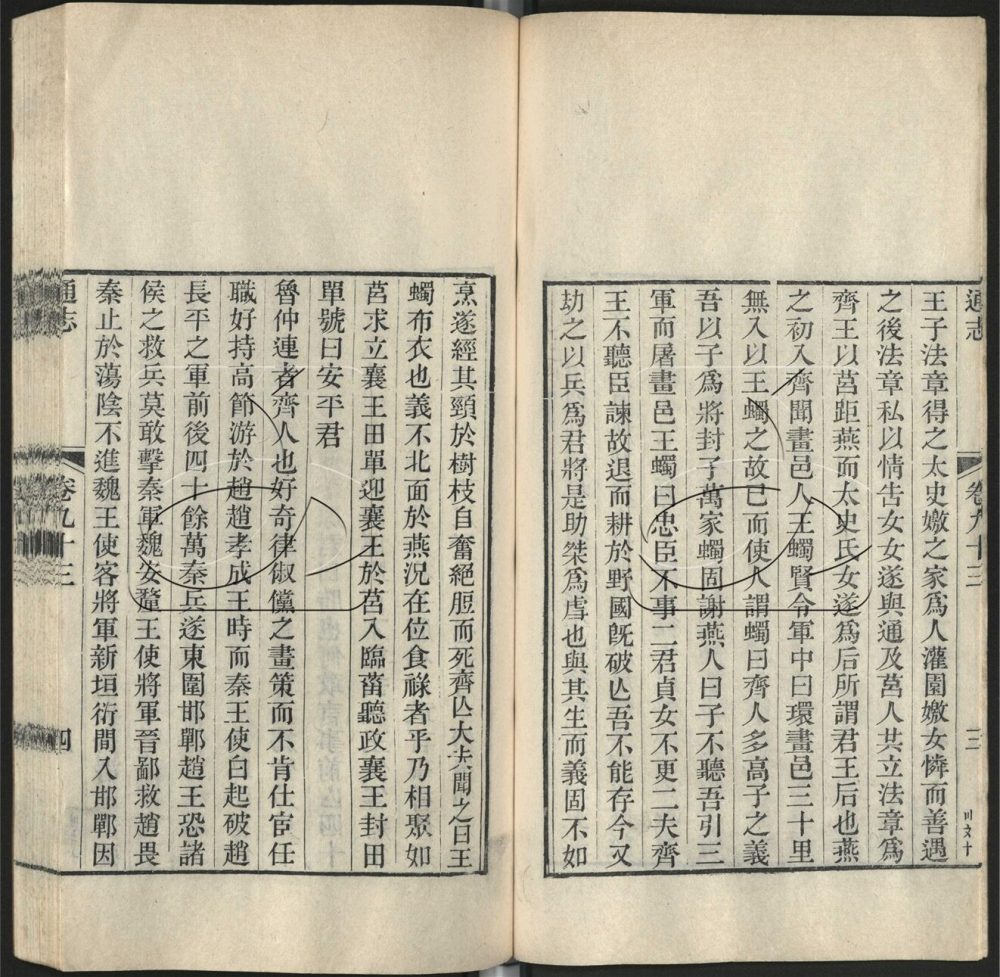 通志
卷九十三
三
王子法章得之太史嬓之家爲人灌園嬓女憐而善遇
之後法章私以情告女女遂與通及莒人共立法章爲
齊王以莒距燕而太史氏女遂爲后所謂君王后也燕
之初入齊聞畫邑人王蠋賢令軍中曰環畫邑三十里
無入以王蠋之故已而使人謂蠋曰齊人多高子之義
吾以子爲將封子萬家蠋固謝燕人曰子不聽吾引三
軍而屠畫邑王蠋曰忠臣不事二君貞女不更二夫齊
王不聽臣諫故退而耕於野國旣破亾吾不能存今又
劫之以兵爲君將是助桀爲虐也與其生而義固不如
烹遂經其頸於樹枝自奮絕脰而死齊亾大夫聞之曰王
蠋布衣也義不北面於燕況在位食祿者乎乃相聚如
莒求立襄王田單迎襄王於莒入臨菑聽政襄王封田
單號曰安平君
魯仲連者齊人也好奇律俶儻之畫策而不肯仕宦任
職好持高節游於趙趙孝成王時而秦王使白起破趙
長平之軍前後四十餘萬秦兵遂東圍邯鄲趙王恐諸
侯之救兵莫敢擊秦軍魏安釐王使將軍晉鄙救趙畏
秦止於蕩陰不進魏王使客將軍新垣衍間入邯鄲因
通志
卷九十三
四